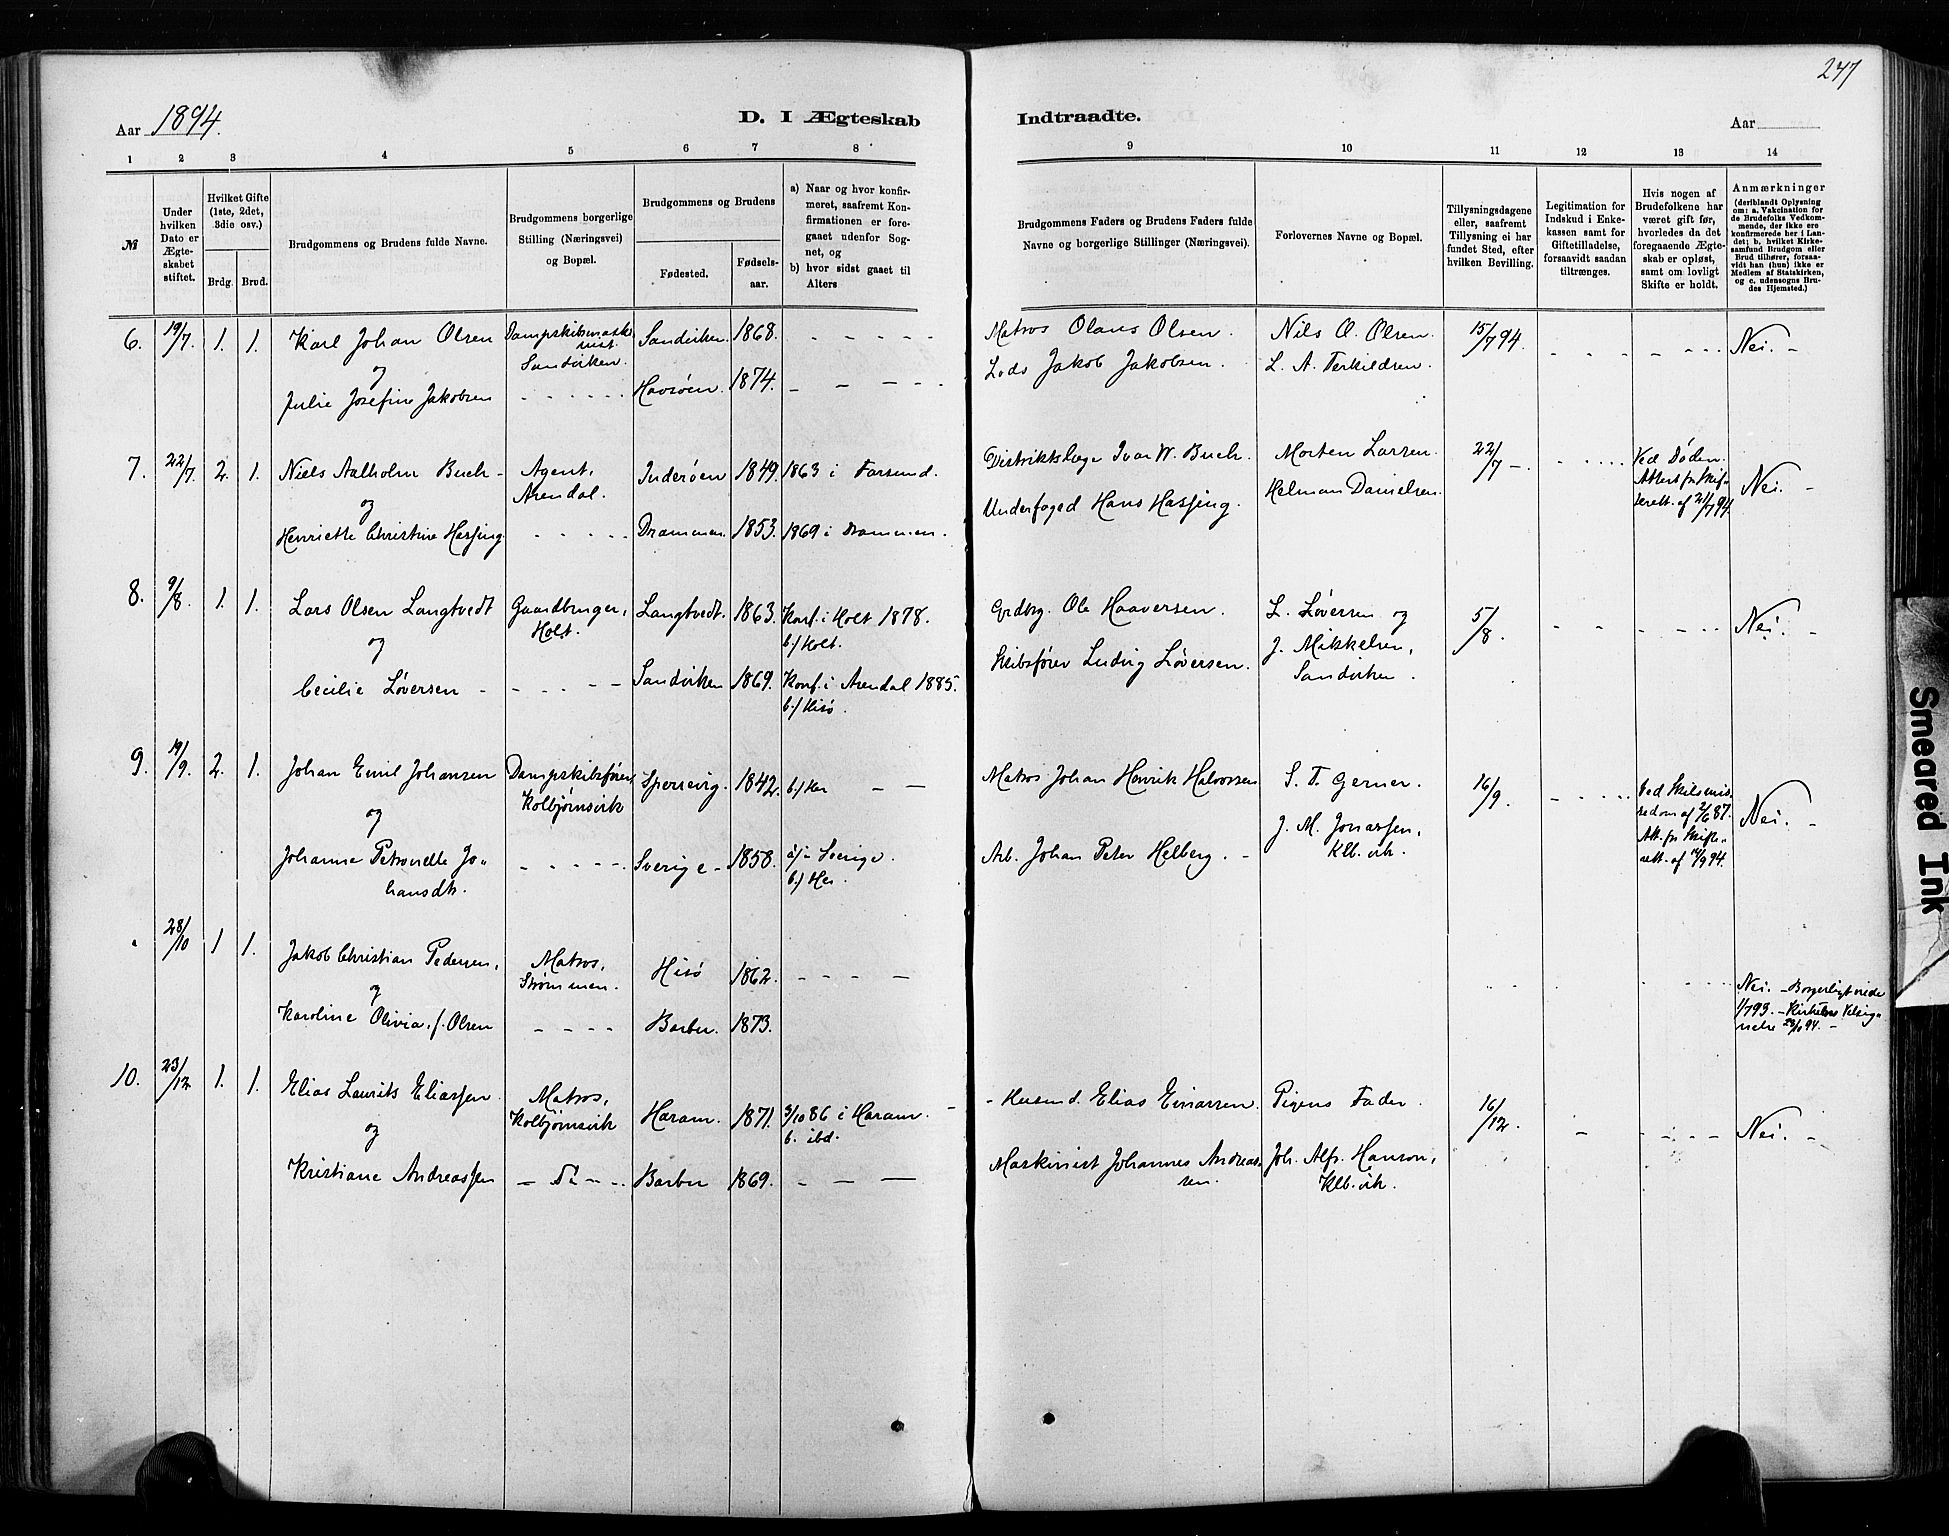 247
Aar 1894.
D. I Ægteskab Indtraadte.
Aar
1 2 3 4 5 6 7 8 9 10 11 12 13 14
№
Under
hvilken
Dato er
Ægte-
skabet
stiftet.
Hvilket Gifte
(1ste, 2det,
3die osv.)
Brdg. Brud.
Brudgommens og Brudens fulde Navne.
Brudgommens borgerlige
Stilling (Næringsvei)
og Bopæl.
Brudgommens og Brudens
Fødested.
Fødsels-
aar.
a) Naar og hvor konfir-
meret, saafremt Kon-
firmationen er fore-
gaaet udenfor Sog-
net, og
b) hvor sidst gaaet til
Alters
Brudgommens Faders og Brudens Faders fulde
Navne og borgerlige Stillinger (Næringsvei).
Forlovernes Navne og Bopæl.
Tillysningsdagene
eller, saafremt
Tillysning ei har
fundet Sted, efter
hvilken Bevilling.
Legitimation for
Indskud i Enke-
kassen samt for
Giftetilladelse,
forsaavidt saadan
tiltrænges.
Hvis nogen af
Brudefolkene har
været gift før,
hvorledes da det
foregaaende Ægte-
skab er opløst,
samt om lovligt
Skifte er holdt.
Anmærkninger
(deriblandt Oplysning
om: a. Vakcination for
de Brudefolks Vedkom-
mende, der ikke ere
konfirmerede her i Lan-
det; b. hvilket Kirke-
samfund Brudgom eller
Brud tilhører, forsaa-
vidt han (hun) ikke er
Medlem af Statskirken,
og c. udensogns Bru-
des Hjemsted.)
6. 19/7. 1. 1. Karl Johan Olsen Dampskibsmask- Sandviken. 1868. Matros Olaus Olsen. Nils O. Olsen. 15/7 94. Nei.
og Sandviken. Lods Jakob Jakobsen. L. A. Terkildsen.
Julie Josefine Jakobsen Havsøen. 1874.
7. 22/7. 2. 1. Niels Aalholm Buch Agent, Inderøen 1849. 1863 i Farsund. Distriktslæge Ivar W. Buch. Morten Larsen. 22/7 Ved Døden. Nei.
og Arendal. Underfoged Hans Hassing. Helman Danielsen. Attest fra Skif-
Henriette Christine Hassing. Drammen. 1853. 1869 i Drammen. teret. af 21/7 94.
8. 9/8. 1. 1. Lars Olsen Langtvedt Gaardbruger, Langtvedt. 1863. Konf. i Holt 1878. Grdbrg. Ole Haaversen. L. Løversen og 5/8. Nei.
og Holt. b./ Holt. Skibsfører Ludvig Løversen. J. Mikkelsen,
Cecilie Løversen Sandviken 1869. Konf. i Arendal 1885. Sandviken.
b./ Hisø.
9. 19/9. 2. 1. Johan Emil Johansen Dampskibsfører, Sperrevig. 1842. b./ Her Matros Johan Henrik Halvorsen S. T. Gerner. 16/9. Ved Skilsmis- Nei.
og Kolbjørnsvik Arb. Johan Peter Helberg. J. M. Jonassen, sedom af 2/6 87.
Johanne Petronelle Jo- Sverige 1858. a/ i Sverige. Klb.vik. Att. fra Skifte-
hansdtr. b./ Her. rett. af 14/9 94.
28/10 1 1. Jakob Christian Pedersen, Matros, Hisø 1862. Nei. - Borgerligt viede
og Strømmen. 1/7 93. - Kirkelig Velsig-
Karoline Olivia, f. Olsen Barbu. 1873. nelse 28/10 94.
10. 23/12 1. 1. Elias Laurits Eliassen Matros, Haram. 1871. 3/10 86 i Haram. Husmd. Elias Einarsen Pigens Fader. 16/12. Nei.
og Kolbjørnsvik b. ibd. Maskinist Johannes Andreas- Joh. Alfr. Hanson,
Kristiane Andreassen Do Barbu 1869. sen. Klb.vik.
Smeared Ink